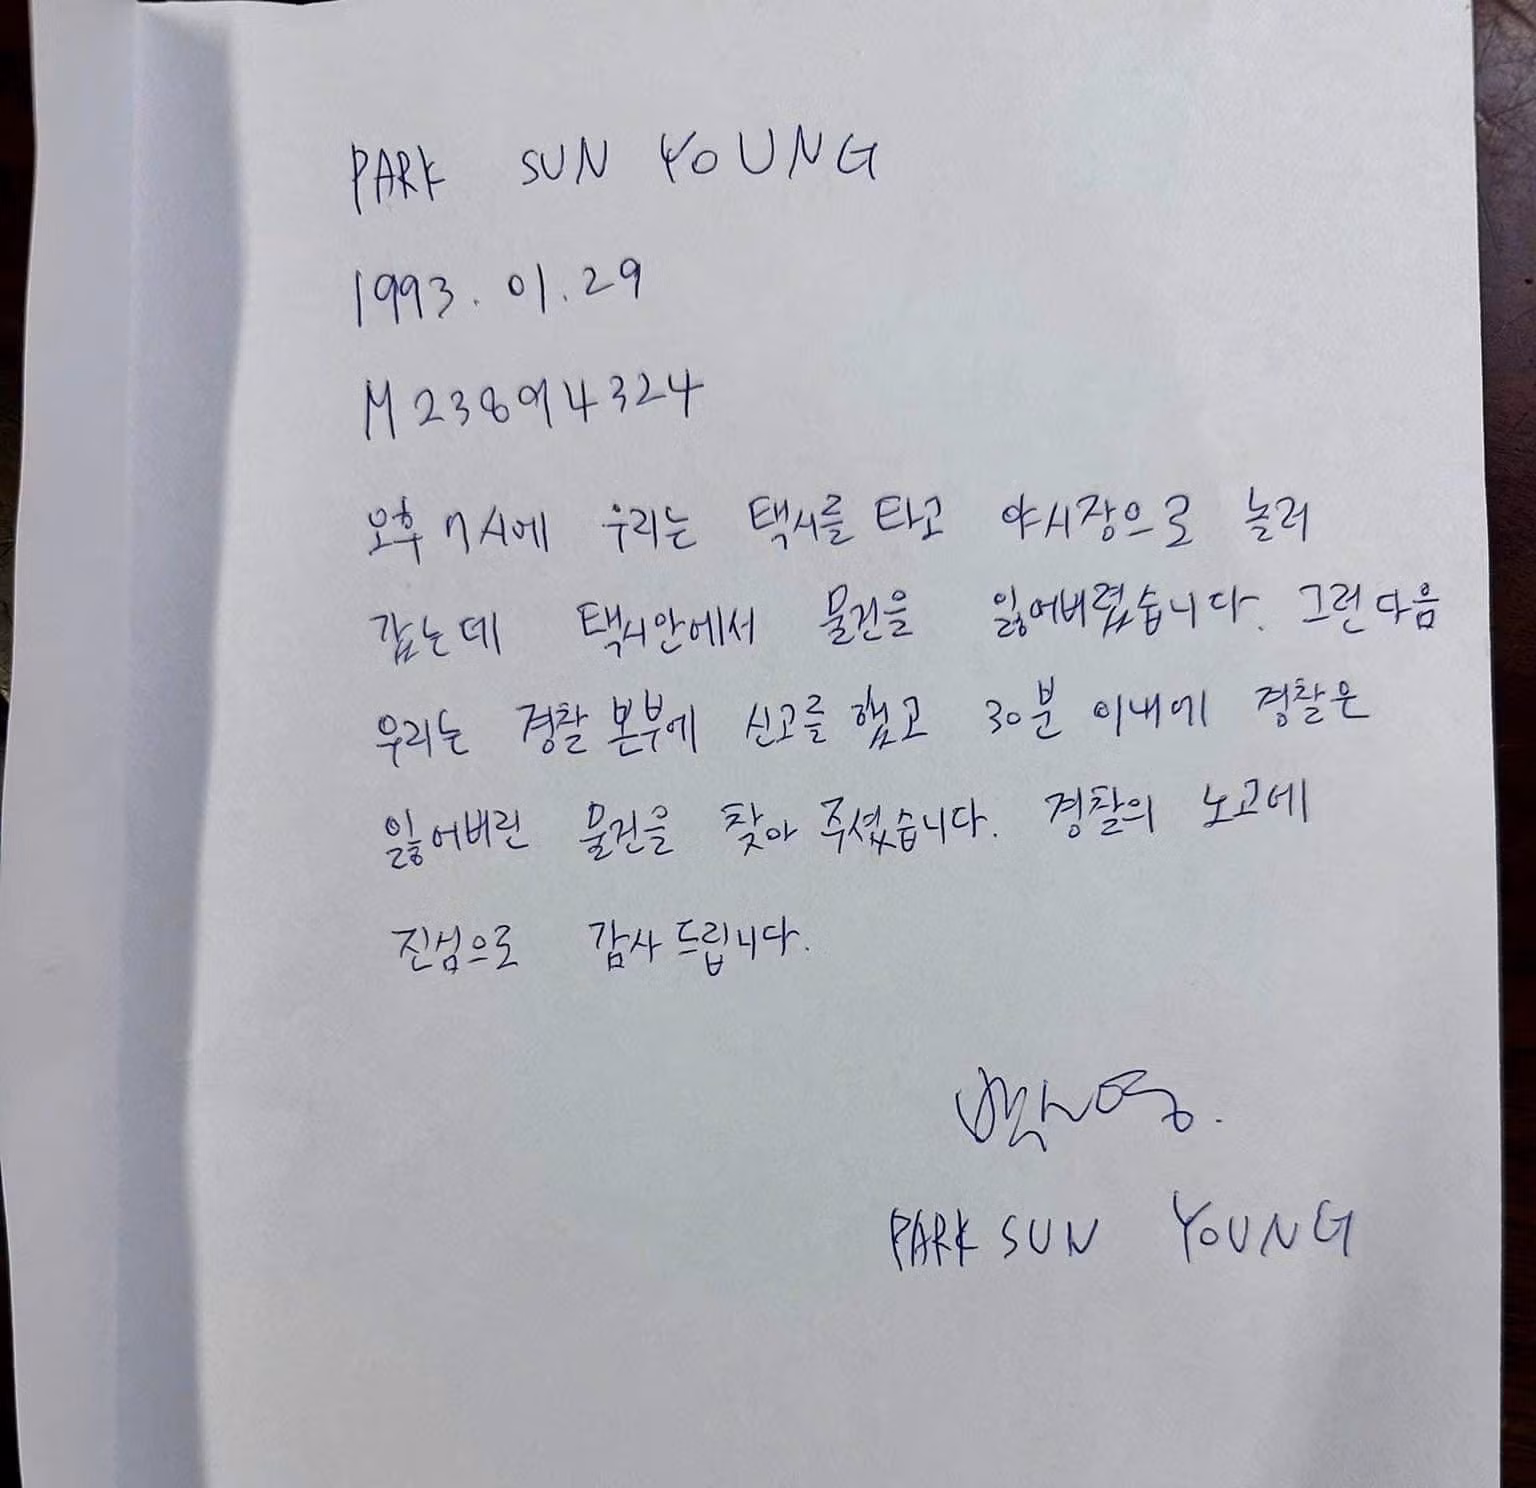 PARK SUN YOUNG
1993.01.29
M23894324
오후 7시에 우리는 택시를 타고 야시장으로 놀러
갔는데 택시안에서 물건을 잃어버렸습니다. 그런다음
우리는 경찰본부에 신고를 했고 30분 이내에 경찰은
잃어버린 물건을 찾아 주셨습니다. 경찰의 노고에
진심으로 감사드립니다.
PARK SUN YOUNG